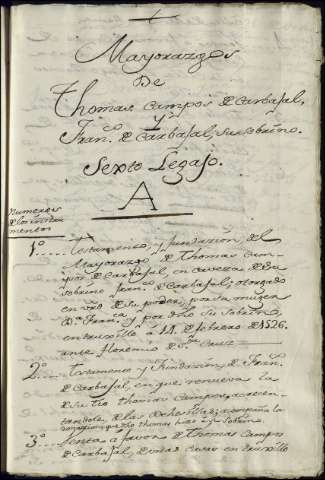 Mayorazgos
De
Thomas Campos de Carbajal,
y
Fran.co de Carbajal, su sobrino.
Sexto Legajo.
A
Numeros
de los instru
mentos
1º.... testamento, y fundazion del
Mayorazgo de Thomas Cam
pos de Carbajal, en caveza de su
sobrino Fran.co de Carbajal; otorgado
en de su poder, por su muger
D.ª Fran.ca y por dho su sobrino,
en truxillo á 11 de febrero de 1526.
ante florencio de S.ta Cruz
2º.... testamento y fundazion de Fran.co
de Carbajal, en que renueva la
de su tio thomas Campos, y acrecen
de las
thomas hizo á su sobrino.
3º.... Venta á favor de thomas Campos
de Carbajal, de unas Casas en truxillo